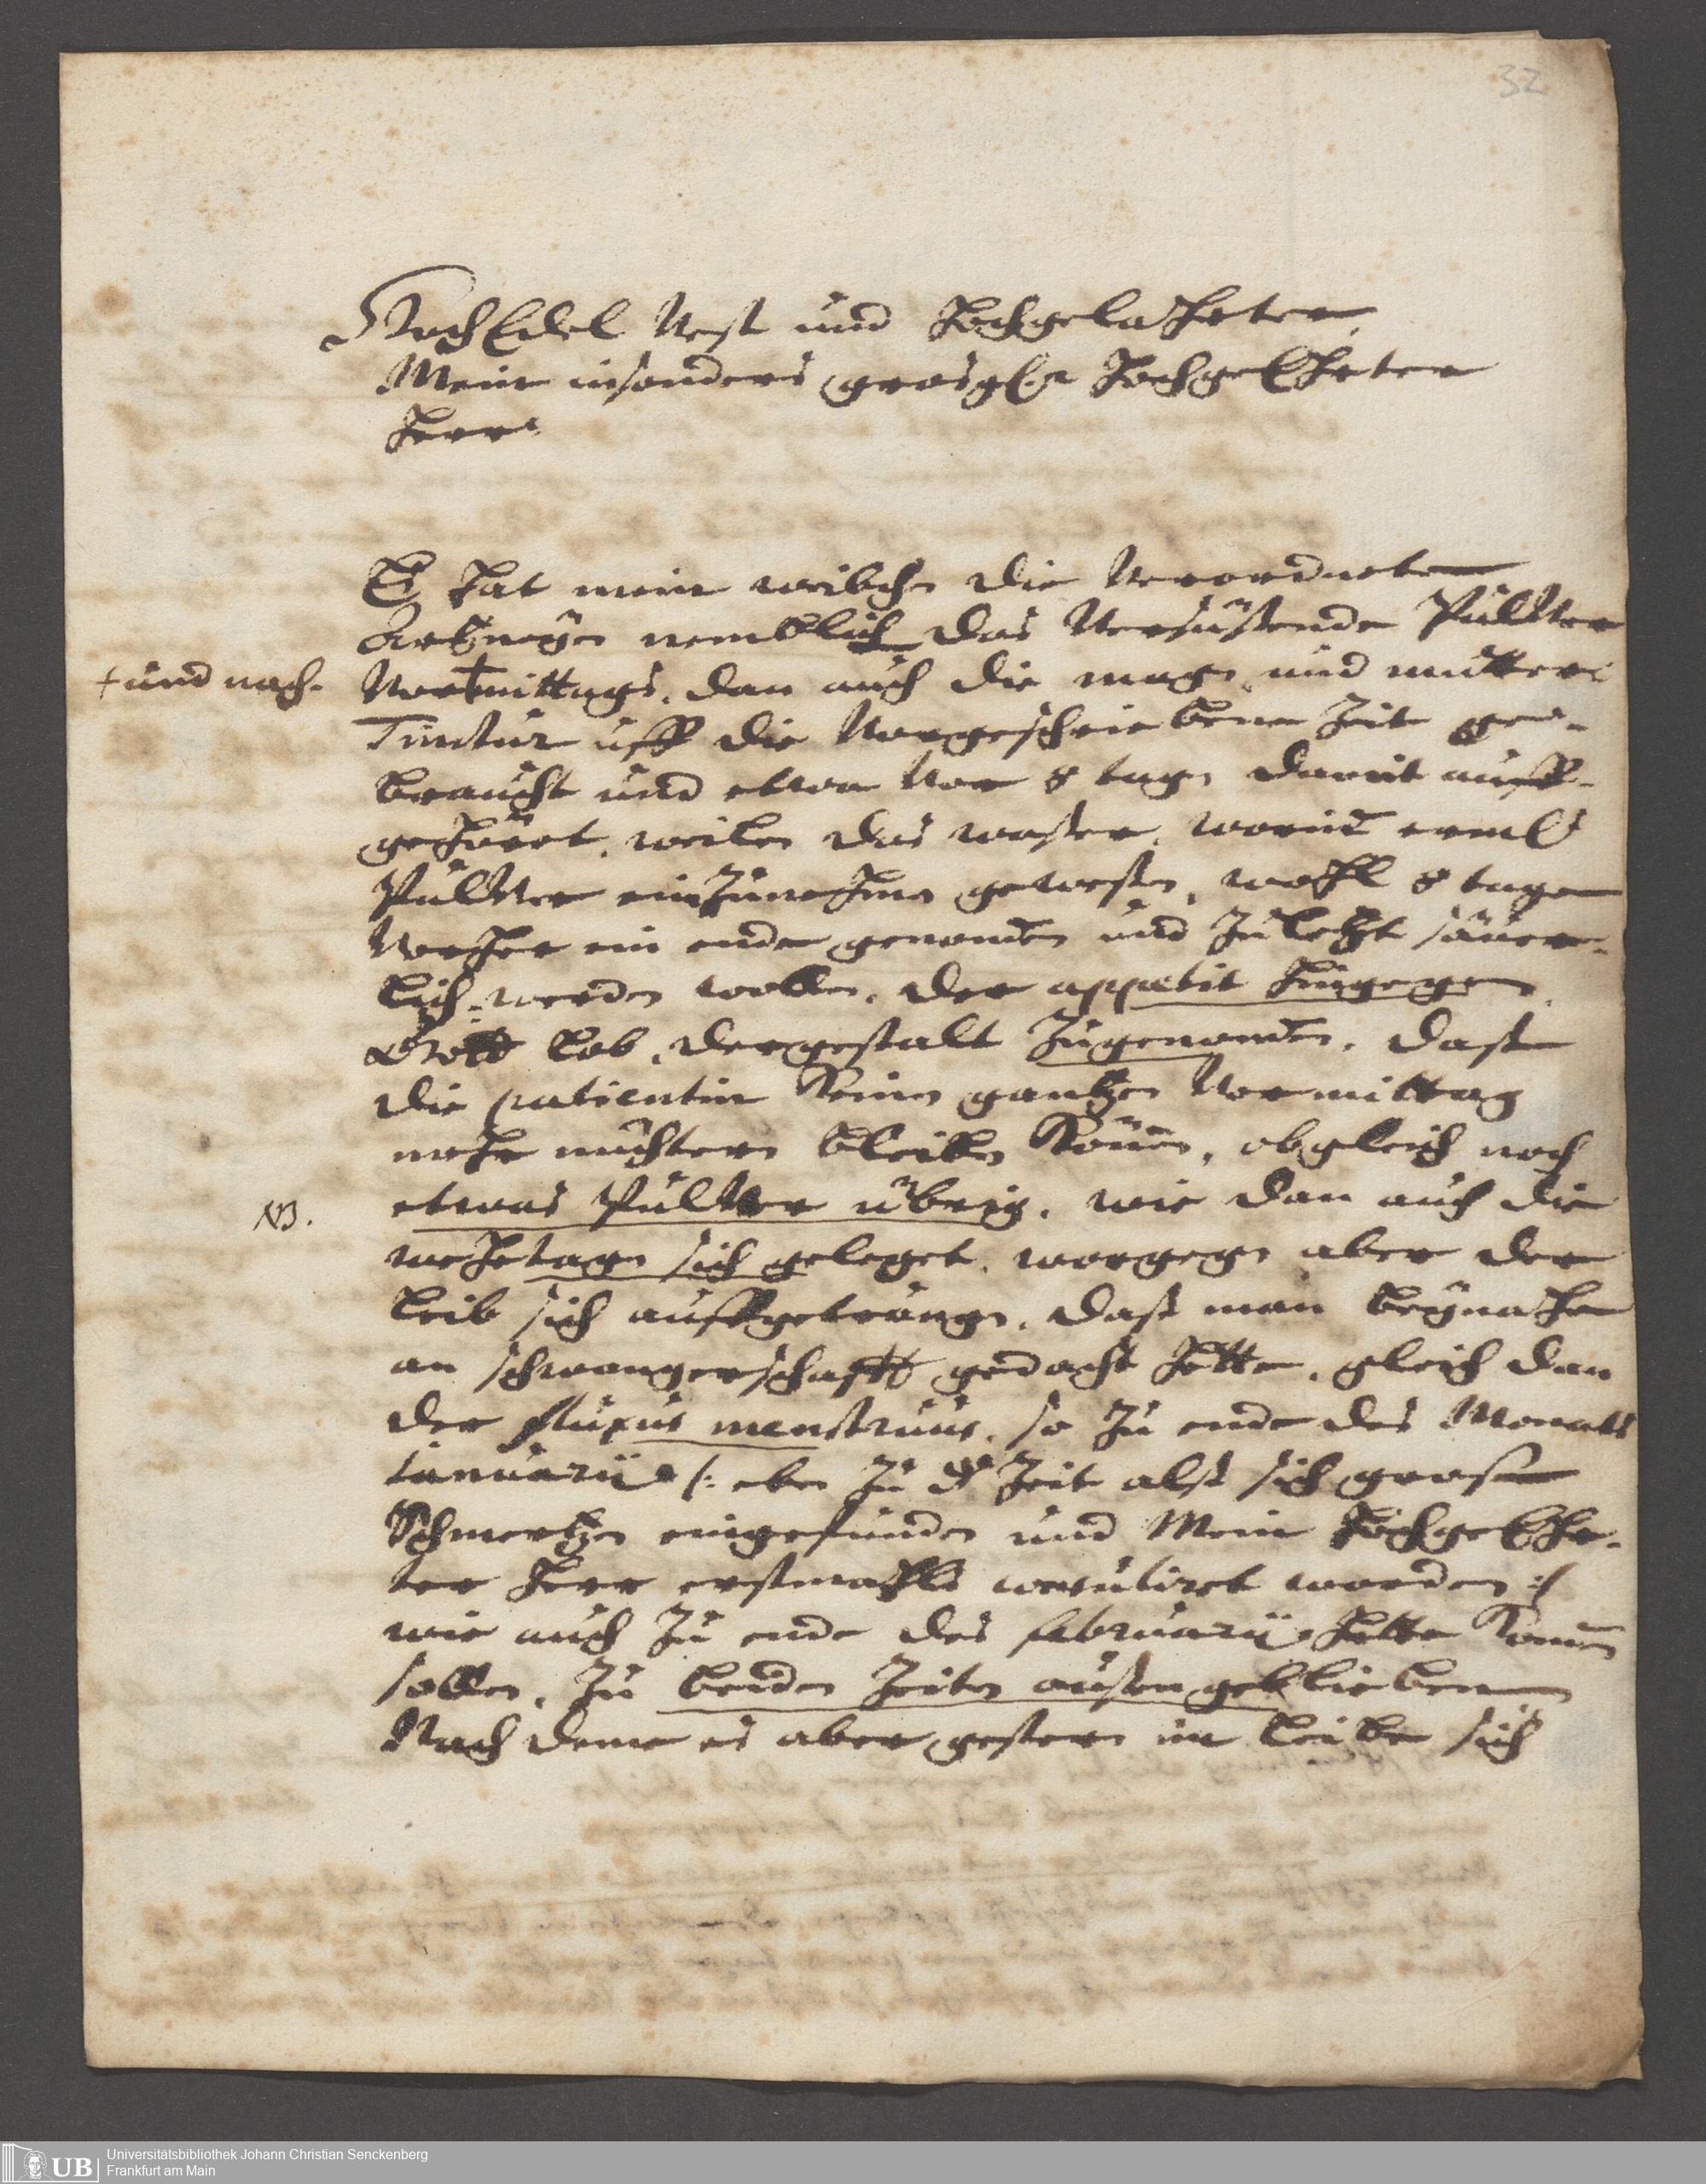 32
HochEdel Vest und Hochgelahrter,
Mein insonders grosg. HochgeEhrter
Herr
Es hat mein weibchen die Verordneten
Artzneyen nemblich das Versüßende Pulver
+ und nach-
Vor+mittags, dan auch die magen und mutter
Tinctur uff die Vorgeschriebene Zeit ge-
braucht und etwa vor 8 tagen damit auff-
gehört, weilen das waßer, worin
Pulver einzunehmen geweßen, wohl 8 tage
Vorher ein ende genommen und zuletzt säuer-
lich werden wollen, der appetit hingegen
Gott Lob, dergestalt zugenommen, daß
die patientin keinen gantzen Vormittag
mehr nüchtern bleiben können, obgleich noch
NB.
etwas Pulver übrig, wie dan auch die
wehetagen sich geleget, worgegen aber der
Leib sich auffgetrungen, daß man beynahe
an schwangerschafft gedacht hette, gleich dan
der fluxus menstruus, so zu ende des Monats
Januarii /: eben zu der Zeit alß sich große
Schmertzen eingefunden und Mein HochgeEhr-
ter Herr erstmahls worden :/
wie auch zu ende des februarii hette kommen
sollen, zu beiden Zeiten außengeblieben
Nach deme es aber gestern im Leibe sich
UB
Universitätsbibliothek Johann Christian Senckenberg
Frankfurt am Main